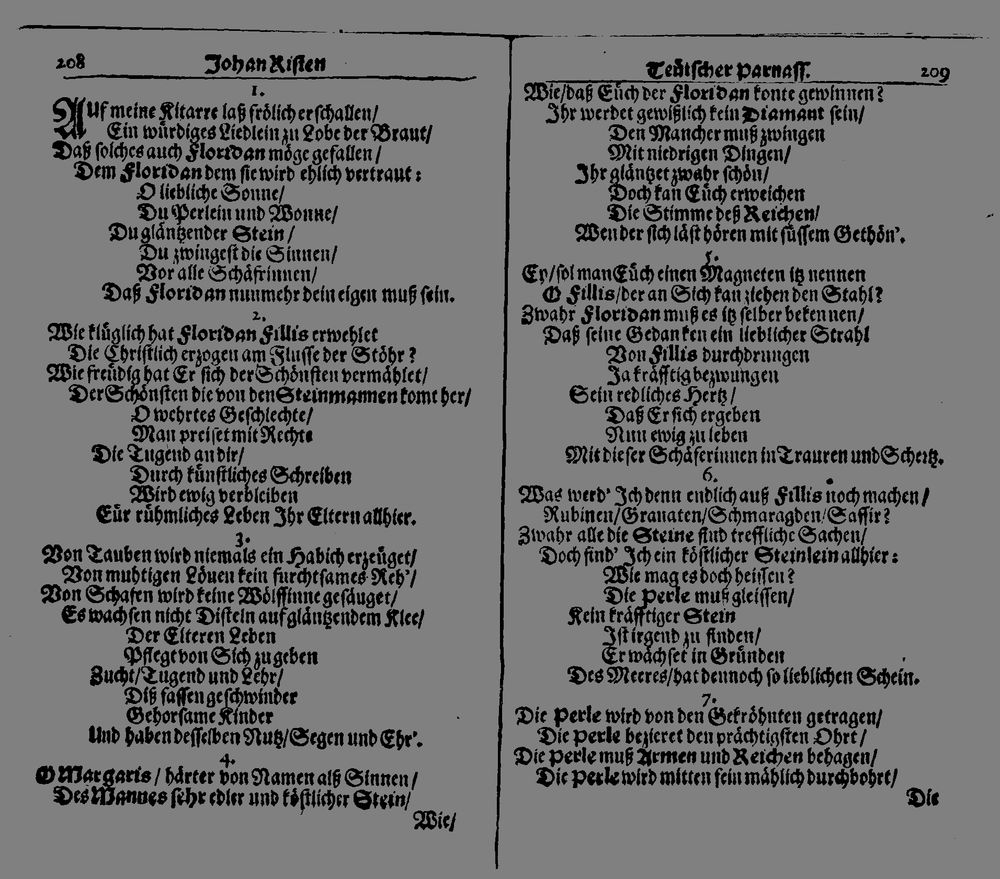 208 Johan Risten
1.
AUf meine Kitarre laß frölich erschallen/
Ein würdiges Liedlein zu Lobe der Braut/
Daß solches auch Floridan möge gefallen/
Dem Floridan dem sie wird ehlich vertraut:
O liebliche Sonne/
Du Perlein und Wonne/
Du gläntzender Stein/
Du zwingest die Sinnen/
Vor alle Schäfrinnen/
Daß Floridan nunmehr dein eigen muß sein.
2.
Wie klüglich hat Floridan Fillis erwehlet
Die Christlich erzogen am Flusse der Stöhr?
Wie freüdig hat Er sich der Schönsten vermählet/
Der Schönsten die von den Steinmannen komt her/
O wehrtes Geschlechte/
Man preiset mit Rechte
Die Tugend an dir/
Durch künstliches Schreiben
Wird ewig verbleiben
Eür rühmliches Leben Ihr Eltern allhier.
3.
Von Tauben wird niemals ein Habich erzeüget/
Von muhtigen Löuen kein furchtsames Reh'/
Von Schafen wird keine Wölffinne gesäuget/
Es wachsen nicht Disteln auf gläntzendem Klee/
Der Elteren Leben
Pflegt von Sich zu geben
Zucht/Tugend und Lehr/
Diß fassen geschwinder
Gehorsame Kinder
Und haben desselben Nutz/Segen und Ehr'.
4.
O Margaris/ härter von Namen alß Sinnen/
Des Mannes sehr edler und köstlicher Stein/
Wie/
Teütscher Parnass. 209
Wie/daß Eüch der Floridan konte gewinnen?
Ihr werdet gewißlich kein Diamant sein/
Den Mancher muß zwingen
Mit niedrigen Dingen/
Ihr gläntzet zwahr schön/
Doch kan Eüch erweichen
Die Stimme deß Reichen/
Wen der sich läst hören mit süssem Gethön'.
5.
Ey/sol man Eüch einen Magneten itz nennen
O Fillis/der an Sich kan ziehen den Stahl?
Zwahr Floridan muß es itz selber bekennen/
Daß seine Gedanken ein lieblicher Strahl
Von Fillis durchdrungen
Ja kräfftig bezwungen
Sein redliches Hertz/
Daß Er sich ergeben
Nun ewig zu leben
Mit dieser Schäferinnen in Trauren und Schertz.
6.
Was werd' Ich denn endlich auß Fillis noch machen/
Rubinen/Granaten/Schmaragden/Saffir?
Zwahr alle die Steine sind treffliche Sachen/
Doch find' Ich ein köstlicher Steinlein allhier:
Wie mag es doch heissen?
Die Perle muß gleissen/
Kein kräfftiger Stein
Ist irgend zu finden/
Er wächset in Gründen
Des Meeres/hat dennoch so lieblichen Schein.
7.
Die Perle wird von den Gekröhnten getragen/
Die Perle bezieret den prächtigsten Ohrt/
Die Perle muß Armen und Reichen behagen/
Die Perle wird mitten fein mählich durchbohrt/
Die